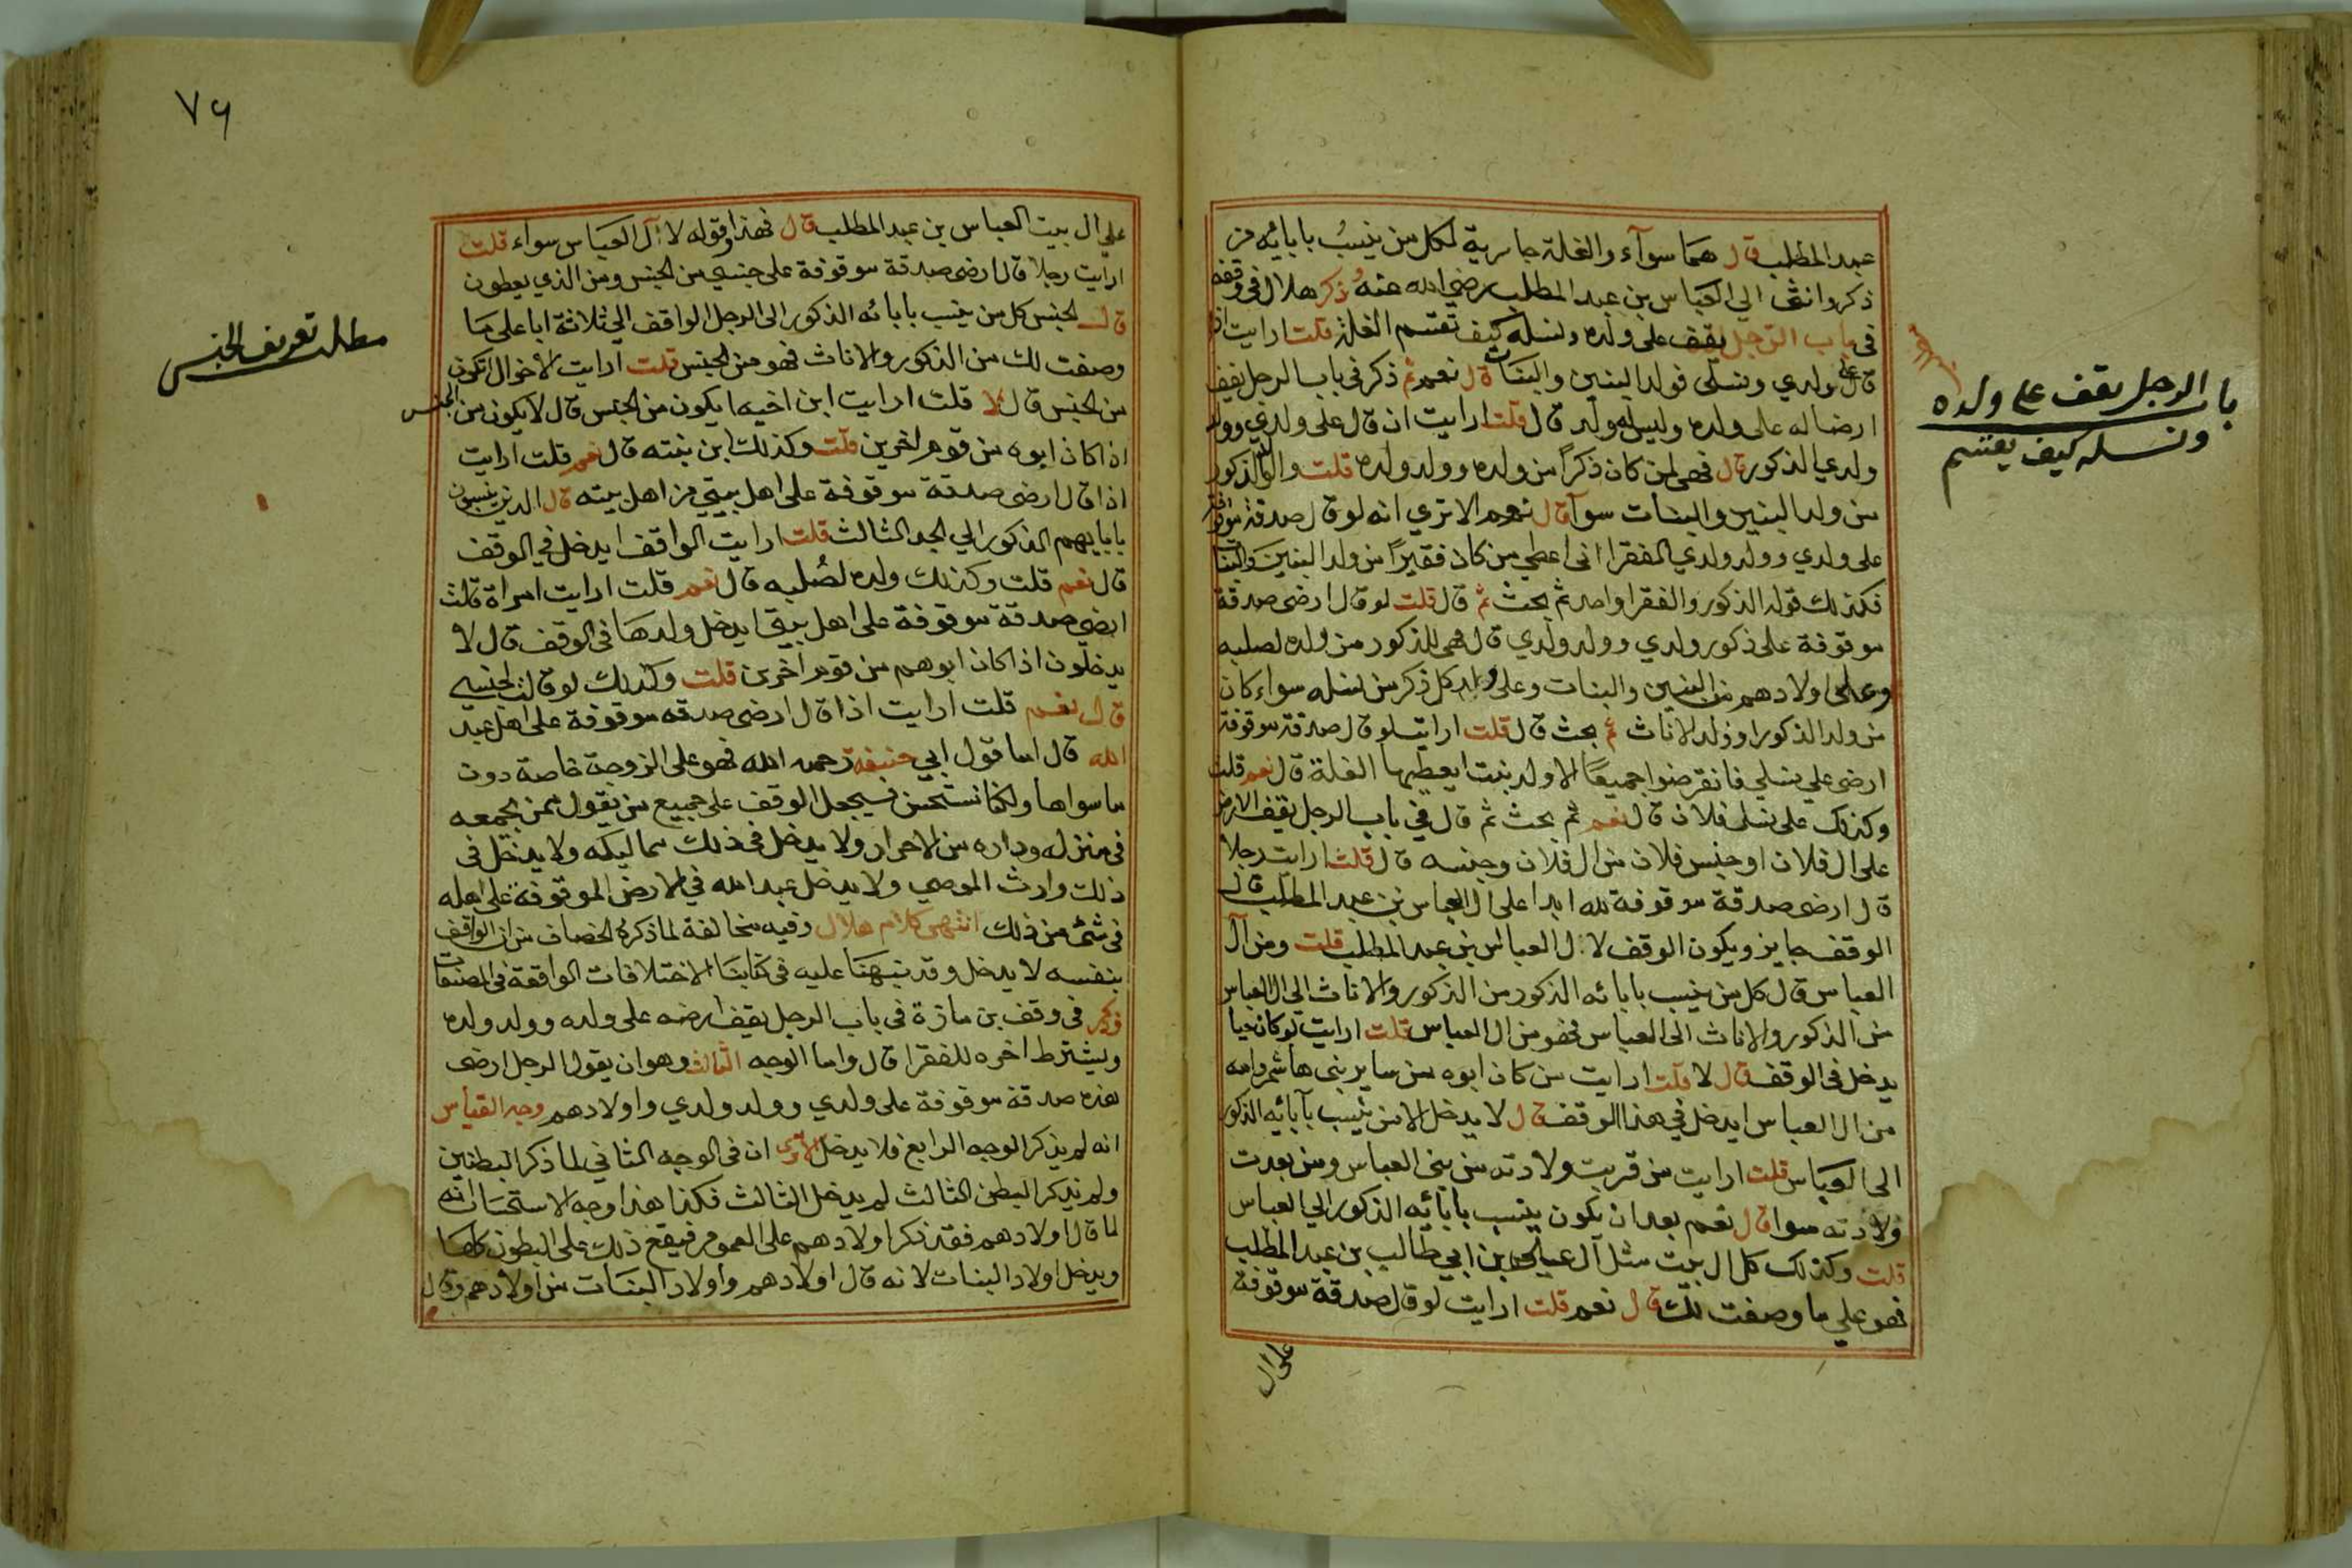 عبد المطلب قال هما سوآء والغلة جارية لكل من ينسب بابائه من
ذكر وانثى الي العباس بن عبد المطلب رضي الله عنه وذكر هلال في وقفه
في باب الرجل يقف على ولده ونسله كيف تقتسم الغلة قلت ارايت اذا
قال على ولدي ونسلي فولد البنين والبنات قال نعم ثم ذكر في باب الرجل يقف
ارضا له على ولده وليس له ولد قال قلت ارايت ان قال على ولدي وولد
ولدي الذكور قال فهي لمن كان ذكرا من ولده وولد ولده قلت والولد الذكور
من ولد البنين والبنات سوآ قال نعم الا تري انه لو قال صدقة موقوفة
على ولدي وولد ولدي الفقرا اني اعطي من كان فقيرا من ولد البنين والبنات
فكذلك قوله الذكور والفقرا واحد ثم بحث ثم قال قلت لو قال ارضي صدقة
موقوفة على ذكور ولدي وولد ولدي قال هي للذكور من ولده لصلبه
وعلى اولادهم من البنين والبنات وعلى ولد كل ذكر من نسله سواء كان
من ولد الذكور او ولد الاناث ثم بحث قال قلت ارايت لو قال صدقة موقوفة
ارضي علي نسلي فانقرضوا جميعا الا ولد بنت ايعطيها الغلة قال نعم قلت
وكذلك على نسل فلان قال نعم ثم بحث ثم قال في باب الرجل يقف الارض
على ال فلان او جنس فلان من ال فلان وجنسه قال قلت ارايت رجلا
قال ارضي صدقة موقوفة لله ابدا على ال العباس بن عبد المطلب قال
الوقف جايز ويكون الوقف لال العباس بن عبد المطلب قلت ومن آل
العباس قال كل من ينسب بابائه الذكور من الذكور والاناث الي ال العباس
من الذكور والاناث الى العباس فهو من ال العباس قلت ارايت لو كان حيا
يدخل في الوقف قال لا قلت ارايت من كان ابوه من ساير بني هاشم وامه
من ال العباس ايدخل في هذا الوقف قال لا يدخل الا من ينسب بآبائه الذكور
الى العباس قلت ارايت من قربت ولادته من بني العباس ومن بعدت
ولادته سوا قال نعم بعد ان يكون ينسب بابائه الذكور الي العباس
قلت وكذلك كل ال بيت مثل آل علي بن ابي طالب بن عبد المطلب
فهو علي ما وصفت لك قال نعم قلت ارايت لو قال صدقة موقوفة
على ال
باب الرجل يقف على ولده
ونسله كيف يقتسم
٧٦
علي ال بيت العباس بن عبد المطلب قال فهذا وقوله لآل العباس سواء قلت
ارايت رجلا قال ارضي صدقة موقوفة على جنسي من الجنس ومن الذي يعطون
قال الجنس كل من ينسب بابائه الذكور الى الرجل الواقف الي ثلاثة ابا على ما
وصفت لك من الذكور والاناث فهو من الجنس قلت ارايت الاخوال ايكون
من الجنس قال لا قلت ارايت ابن اخيه ايكون من الجنس قال لا يكون من الجنس
اذا كان ابوه من قوم اخرين قلت وكذلك ابن بنته قال نعم قلت ارايت
اذا قال ارضي صدقة موقوفة على اهل بيتي من اهل بيته قال الذين ينسبون
بابايهم الذكور الي الجد الثالث قلت ارايت الواقف ايدخل في الوقف
قال نعم قلت وكذلك ولده لصلبه قال نعم قلت ارايت امراة قالت
ارضي صدقة موقوفة على اهل بيتي ايدخل ولدها في الوقف قال لا
يدخلون اذا كان ابوهم من قوم اخرين قلت وكذلك لو قالت لجنسي
قال نعم قلت ارايت اذا قال ارضي صدقة موقوفة على اهل عبد
الله قال اما قول ابي حنيفة رحمه الله فهو على الزوجة خاصة دون
ما سواها ولكنا نستحسن فيجعل الوقف على جميع من يقول ممن يجمعه
في منزله وداره من الاحرار ولا يدخل في ذلك مماليكه ولا يدخل في
ذلك وارث الموصي ولا يدخل عبد الله في الارض الموقوفة على اهله
في شئ من ذلك انتهى كلام هلال وفيه مخالفة لما ذكره الخصاف من ان الواقف
بنفسه لا يدخل وقد نبهنا عليه في كتابنا الاختلافات الواقعة في المصنفات
وذكر في وقف بن مازة في باب الرجل يقف ارضه على ولده وولد ولده
ويشترط اخره للفقرا قال واما الوجه الثالث وهو ان يقول الرجل ارضي
هذه صدقة موقوفة على ولدي وولد ولدي واولادهم وجه القياس
انه لم يذكر الوجه الرابع فلا يدخل الا تري ان في الوجه الثاني لما ذكر البطنين
ولم يذكر البطن الثالث لم يدخل الثالث فكذا هذا وجه الاستحسان انه
لما قال اولادهم فقد ذكر اولادهم على العموم فيقع ذلك على البطون كلها
ويدخل اولاد البنات لانه قال اولادهم واولاد البنات من اولادهم وقال
مطلب تعريف الجنس